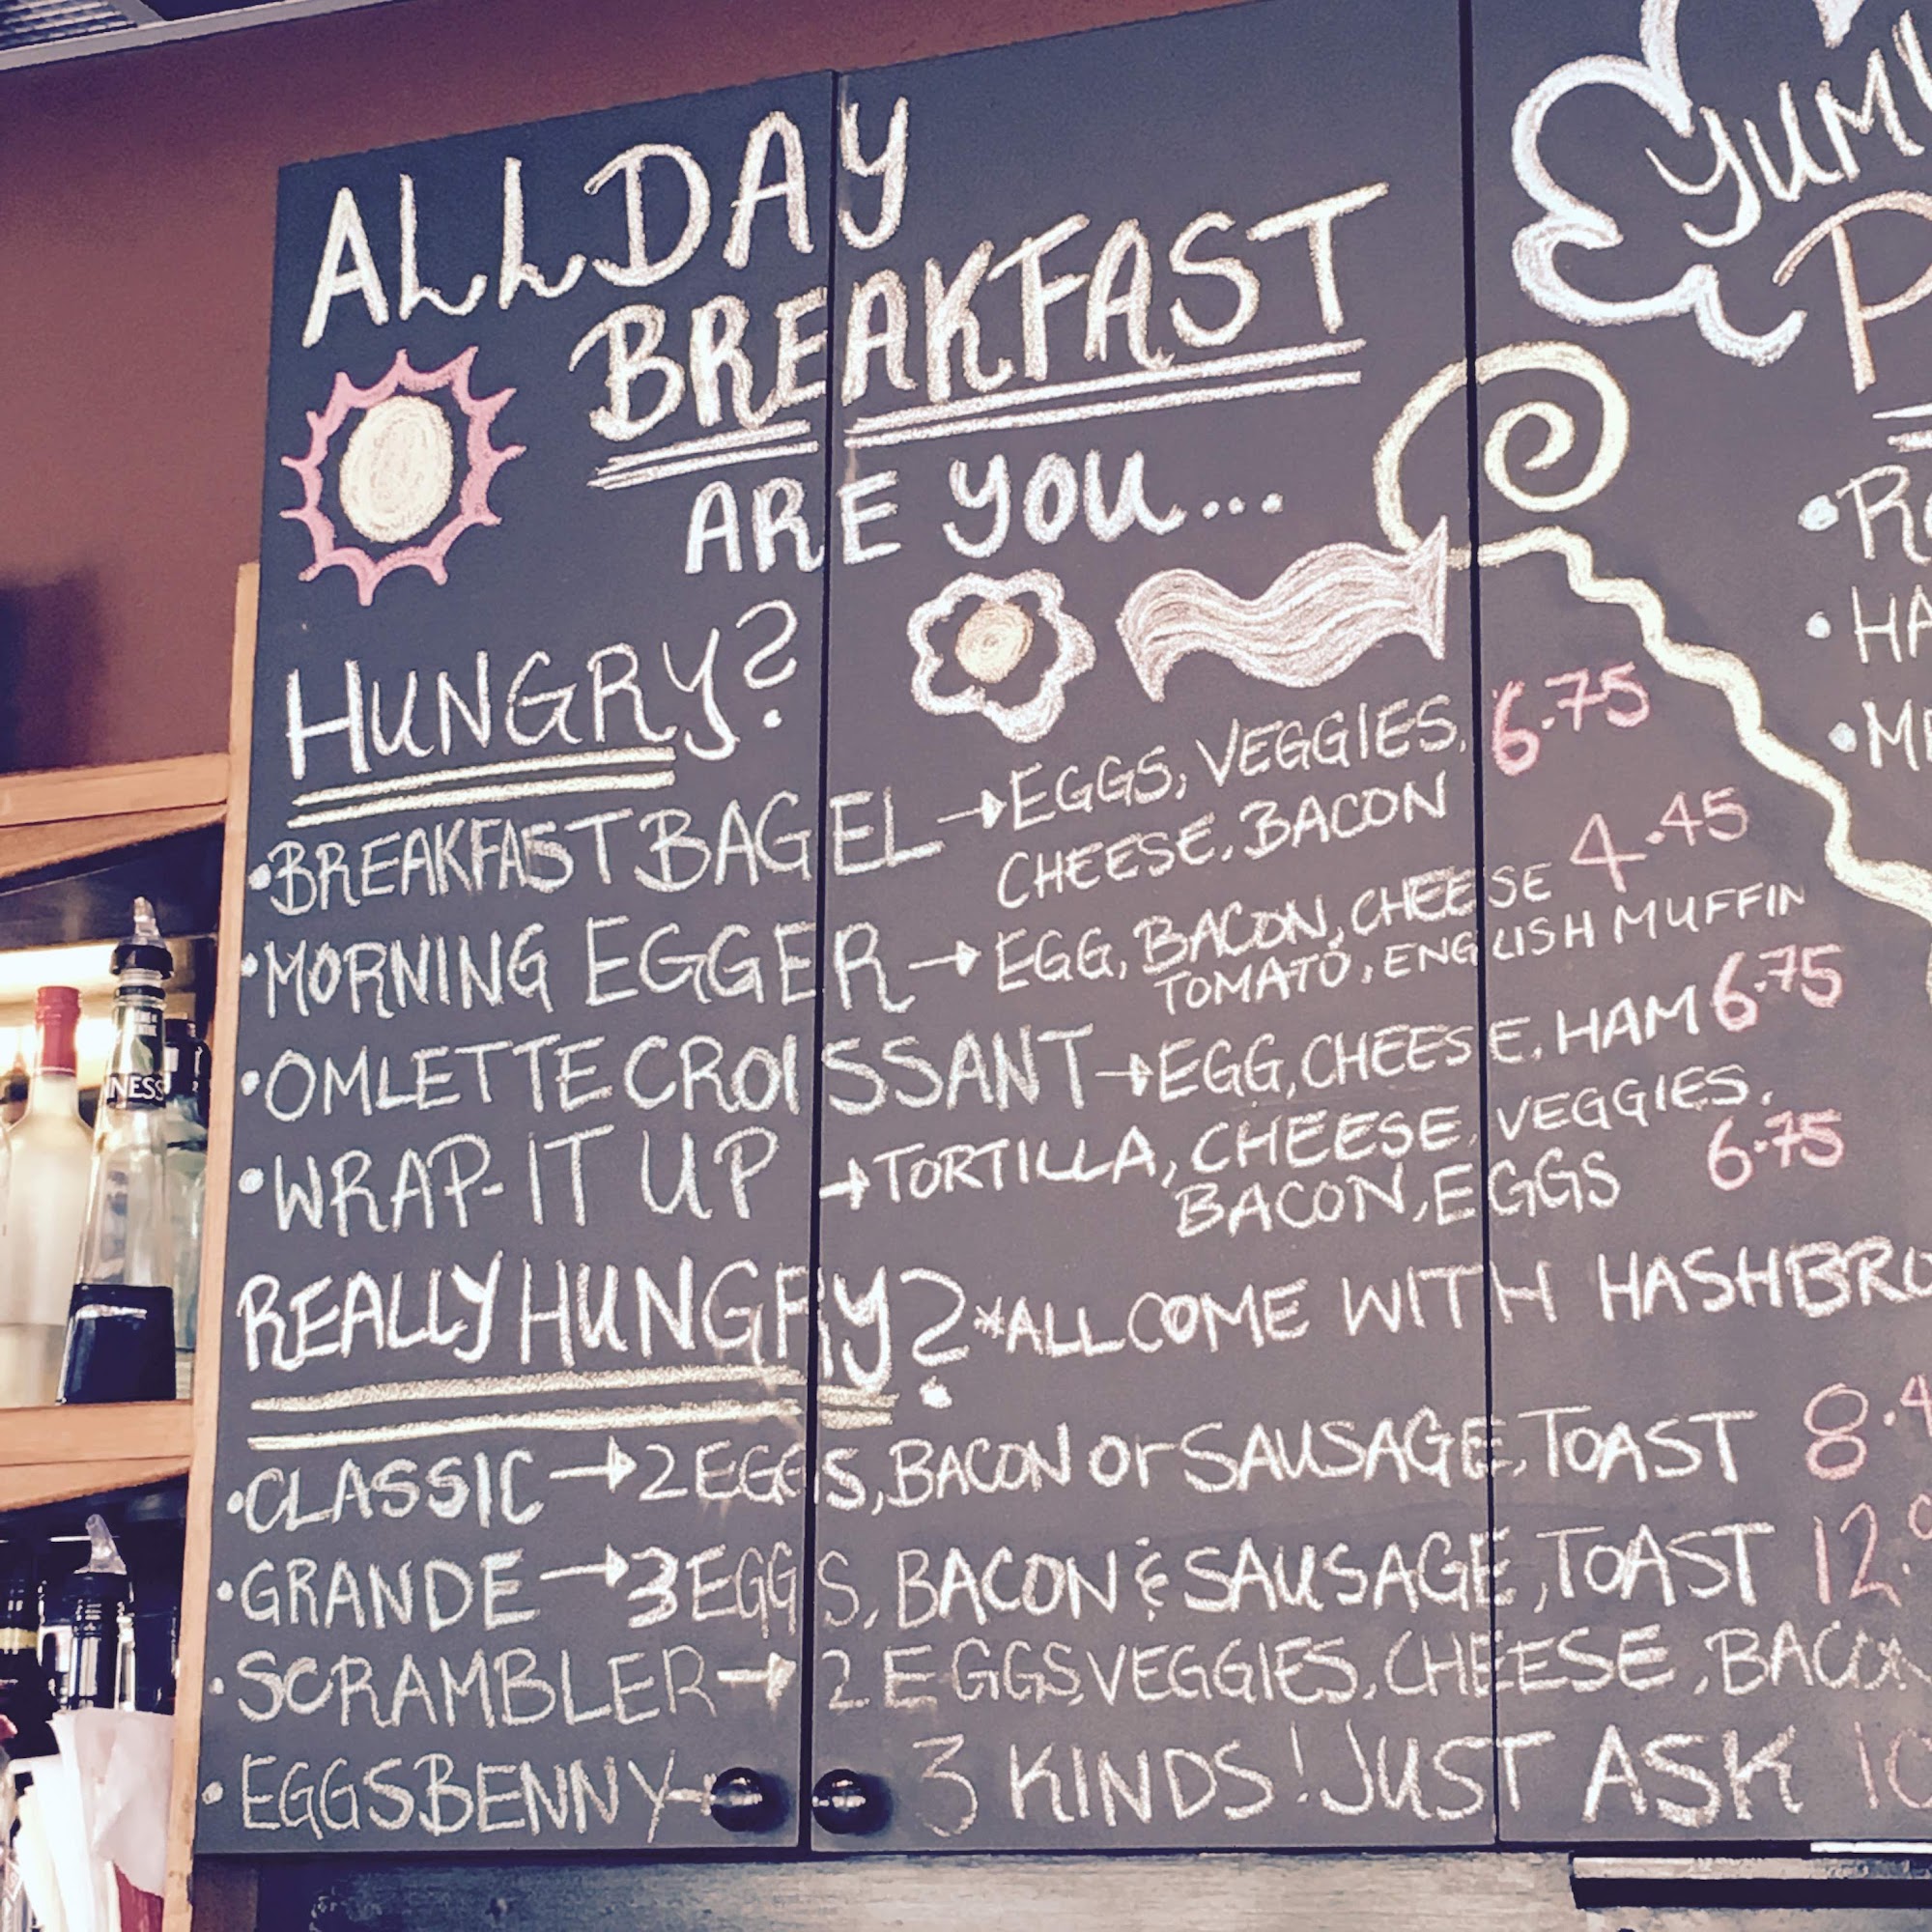 ALL DAY
BREAKFAST
ARE YOU...
HUNGRY?
•BREAKFAST BAGEL→EGGS, VEGGIES, 6.75
CHEESE, BACON
•MORNING EGGER→EGG, BACON, CHEESE 4.45
TOMATO, ENGLISH MUFFIN
•OMLETTE CROISSANT→EGG, CHEESE, HAM 6.75
•WRAP-IT UP→TORTILLA, CHEESE, VEGGIES,
BACON, EGGS 6.75
REALLY HUNGRY? *ALL COME WITH HASHBRO
•CLASSIC→2 EGGS, BACON or SAUSAGE, TOAST 8.4
•GRANDE→3 EGGS, BACON & SAUSAGE, TOAST 12.
•SCRAMBLER→2 EGGS, VEGGIES, CHEESE, BACON
•EGGSBENNY→3 KINDS! JUST ASK 10
YUM
P
•R
•HA
•M
NESS